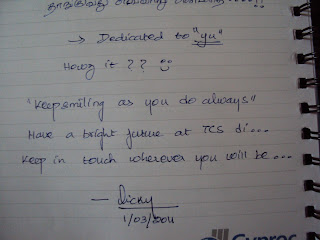 → Dedicated to "yu"
Howz it ? ? :)
"Keep smiling as you do always"
Have a bright future at TCS di...
Keep in touch wherever you will be...
— Dicky
1/03/2004